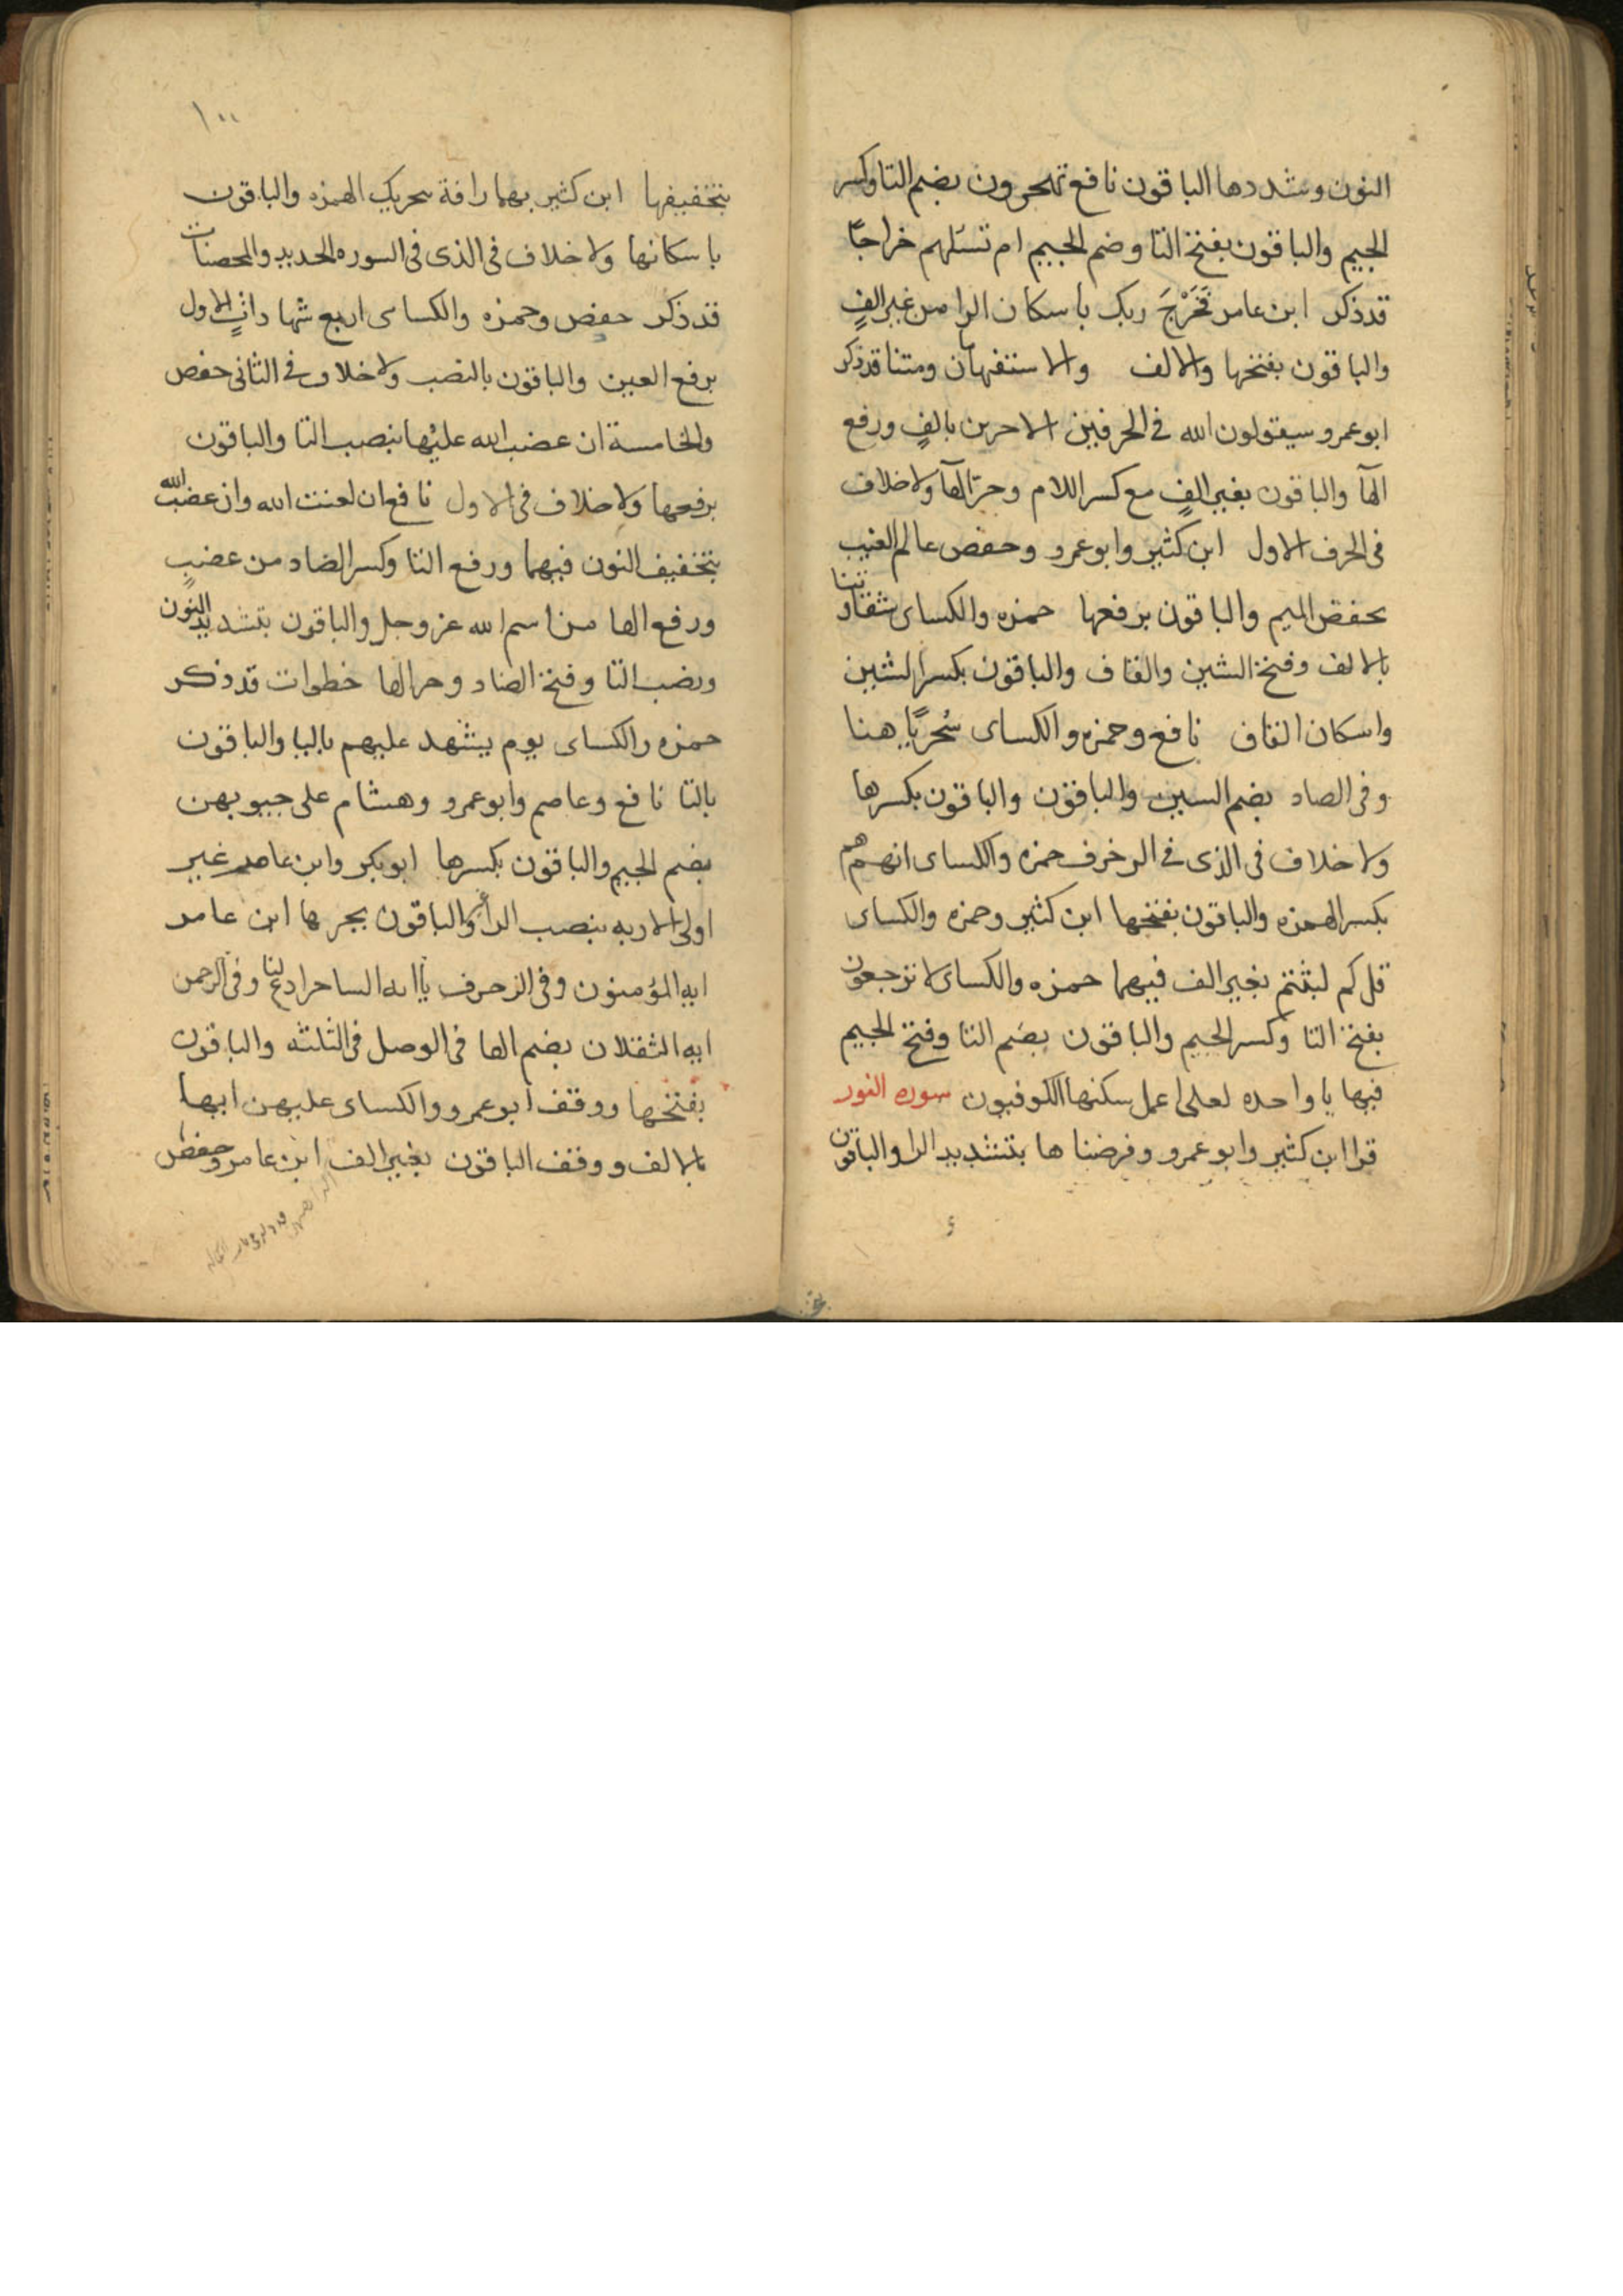 النون وشددها الباقون نافع تهجرون بضم التا وكسر
الجيم والباقون بفتح التا وضم الجيم ام تسئلهم خراجًا
قد ذكر ابن عامر فَخَرْجَ ربك باسكان الرا من غير الفٍ
والباقون بفتحها والالف والاستفهامان ومتنا قد ذكر
ابو عمرو سيقولون الله فى الحرفين الاخرين بالفٍ ورفع
الهآ والباقون بغير الفٍ مع كسر اللام وجر الهآ ولا خلاف
فى الحرف الاول ابن كثير وابو عمرو وحفص عالم الغيب
بخفض الميم والباقون برفعها حمزه والكساى شقاوتنا
بالالف وفتح الشين والقاف والباقون بكسر الشين
واسكان القاف نافع وحمزه والكساى سُخريًا هنا
وفى الصاد بضم السين والباقون والباقون بكسرها
ولا خلاف فى الذى فى الزخرف حمزه والكساى انهم هم
بكسر الهمزه والباقون بفتحها ابن كثير وحمزه والكساى
قل كم لبثتم بغير الف فيهما حمزه والكساى لا ترجعون
بفتح التا وكسر الجيم والباقون بضم التا وفتح الجيم
فيها يا واحده لعلى اعمل سكنها الكوفيون سوره النور
قرا ابن كثير وابو عمرو وفرضنا ها بتشديد الرا والباقون
١٠٠
بتخفيفها ابن كثير بهما رافة بتحريك الهمزه والباقون
باسكانها ولا خلاف فى الذى فى السوره الحديد والمحصنات
قد ذكر حفص وحمزه والكساى اربع شهاداتٍ الاول
برفع العين والباقون بالنصب ولا خلاف فى الثانى حفص
والخامسة ان غضب الله عليها بنصب التا والباقون
برفعها ولا خلاف فى الاول نافع ان لعنت الله وان غضب الله
بتخفيف النون فيهما ورفع التا وكسر الضاد من غضبٍ
ورفع الها من اسم الله عز وجل والباقون بتشديد النون
ونصب التا وفتح الضاد وجر الها خطوات قد ذكر
حمزه والكساى يوم يشهد عليهم باليا والباقون
بالتا نافع وعاصم وابو عمرو وهشام على جيوبهن
بضم الجيم والباقون بكسرها ابو بكر وابن عامر غير
اولى الاربه بنصب الرا والباقون بجرها ابن عامر
ايه المؤمنون وفى الزخرف يا ايه الساحر ادع لنا وفى الرحمن
ايه الثقلان بضم الها فى الوصل فى الثلثه والباقون
بفتحها ووقف ابو عمرو والكساى عليهن ايها
بالالف ووقف الباقون بغير الف ابن عامر وحفص